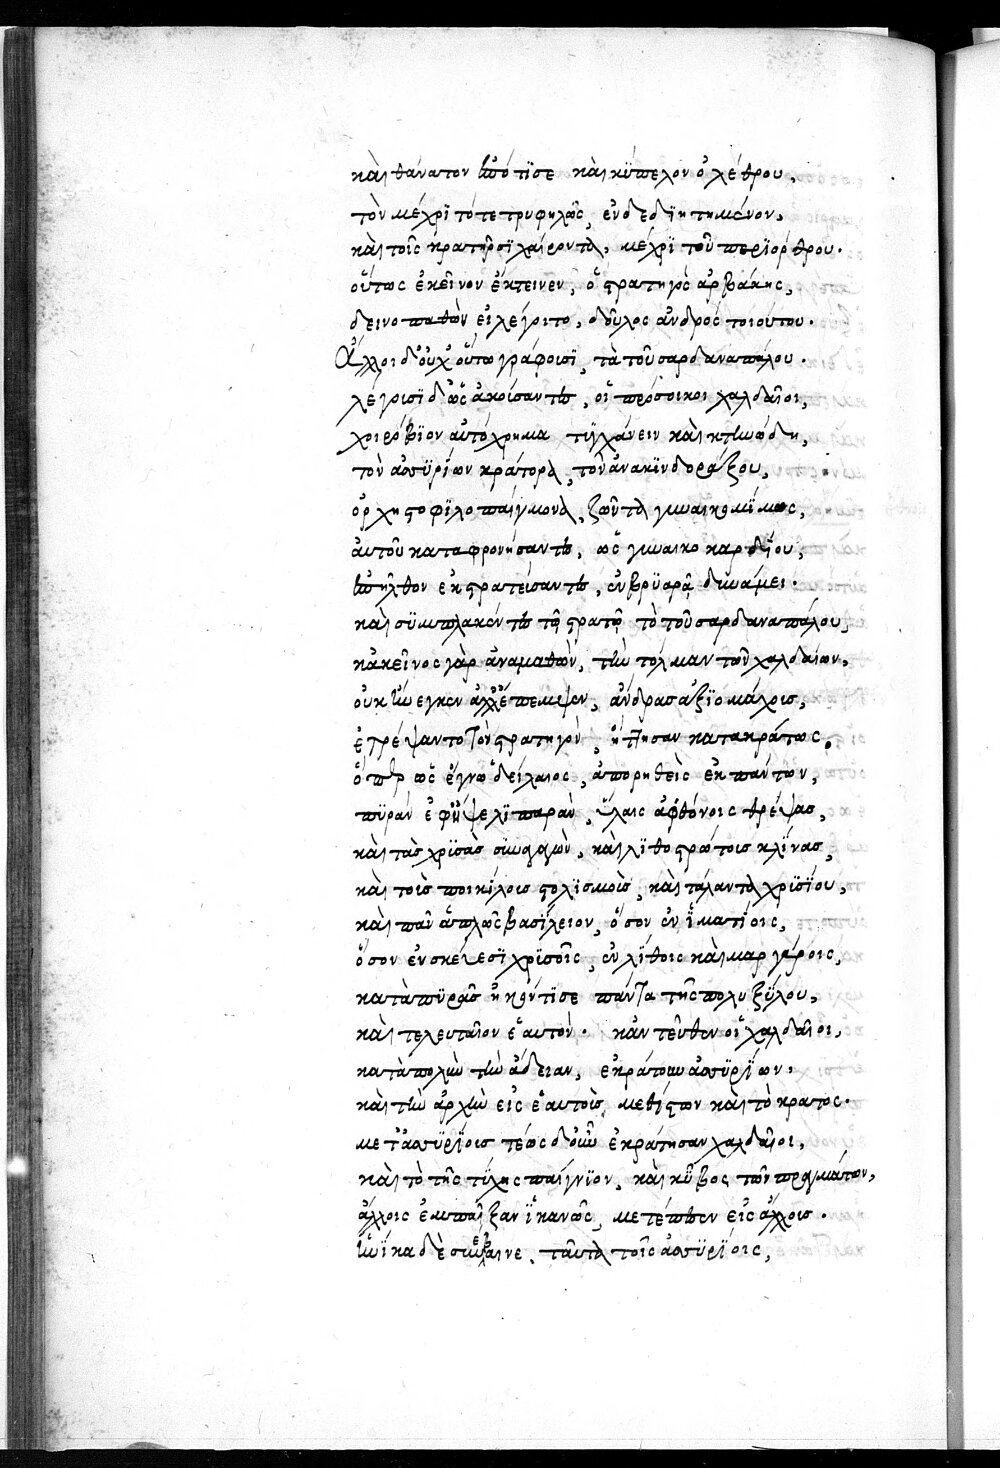 καὶ θάνατον ἐπότϊσε καὶ κύπελον ὀλέθρου,
τὸν μέχρϊ τότε τρυφηλῶς, ἐνδεδϊητημένον,
καὶ τοῖς κρατῆρσϊ χαίροντα, μέχρϊ τοῦ περϊόρθρου.
οὕτως ἐκεῖνον ἔκτεινεν, ὁ στρατηγὸς ἀρβάκης,
δεινοπαθῶν εἰ λέγοιτο, δοῦλος ἀνδρός τοιούτου.
Ἄλλοι δ' οὐχ οὕτω γράφουσϊ, τὰ τοῦ σαρδαναπάλου.
λέγουσϊ δ' ὡς ἀκούσαντες, οἱ πρόσοικοι χαλδαῖοι,
χοιρόβϊον αὐτόχρημα τϋγχάνειν καὶ κτηνώδη,
τὸν ἀσσϋρίων κράτορα, τοῦ ἀνακϊνδοράξου,
ὀρχηστοφϊλοπαίγμονα, ζῶντα γυναικομΐμως,
αὐτοῦ καταφρονήσαντες, ὡς γυναικοκαρδΐου,
ἐπῆλθον ἐκστρατεύσαντες, ἐν βρϋαρᾷ δυνάμει.
καὶ σϋμπλακέντες τῷ στρατῷ τὸ τοῦ σαρδαναπάλου,
κἀκεῖνος γὰρ ἀναμαθὼν, τὴν τόλμαν τῶν χαλδαίων,
οὐκ ἤνεγκεν ἀλλ' ἔπεμψεν, ἄνδρας ἀξϊομάχους,
ἐτρέψαντο τὸν στρατηγὸν, ἥττησαν κατακράτως.
ὅπερ ὡς ἔγνω δείλαιος, ἀπορηθεὶς ἐκ πάντων,
πϋράν ἐφ' ϋψελϊπαρὰν, ὕλαις ἀφθόνοις θρέψας,
καὶ τὰς χρϋσὰς σϋναγαγὼν, καὶ λϊθοστρώτους κλίνας,
καὶ τοὺς ποικίλους στολϊσμοὺς, καὶ τάλαντα χρϋσΐου,
καὶ πᾶν ἁπλῶς βασίλειον, ὅσον ἐν ἱματίοις,
ὅσον ἐν σκεύεσϊ χρϋσοῖς, ἐν λίθοις καὶ μαργάροις,
κατὰ πϋρᾶς ἠκόντϊσε πάντα τῆς πολυξύλου,
καὶ τελευταῖον ἑαυτὸν. κἀντεῦθεν οἱ χαλδαῖοι,
κατὰ πολὺν τὴν ἄδειαν, ἐκράτουν ἀσσϋρϊων,
καὶ τὴν ἀρχὴν εἰς ἑαυτοὺς, μεθίστων καὶ τὸ κράτος.
μετ' ἀσσϋρϊους τέως δ' οὖν ἐκράτησαν χαλδαῖοι,
καὶ τὸ τῆς τύχης παίγνϊον, καὶ κύβος τῶν πραγμάτων,
ἄλλοις ἐμπαῖξαν ἱκανῶς, μετέπεσεν εἰς ἄλλους.
ἡνίκα δὲ συνέβαινε, ταῦτα τοῖς ἀσσϋρϊοις,